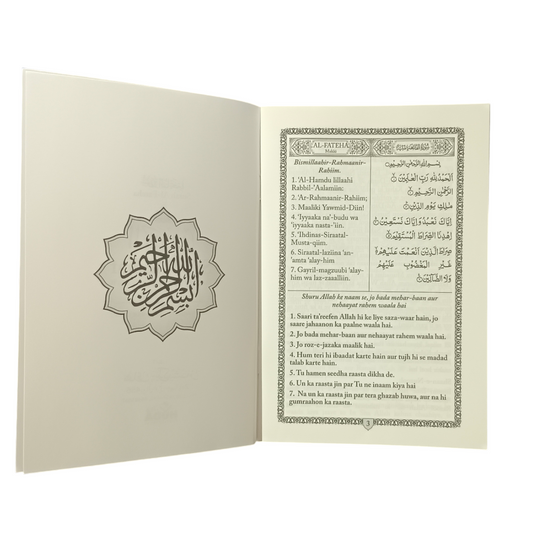 بسم الله الرحمن الرحيم
AL-FATEHA
Makia
Bismillaahir-Rahmaanir-
Rahiim.
1. 'Al-Hamdu lillaahi
Rabbil-'Aalamiin:
2. 'Ar-Rahmaanir-Rahiim;
3. Maaliki Yawmid-Diin!
4. 'Iyyaaka na'-budu wa
'iyyaaka nasta-'iin.
5. 'Ihdinas-Siraatal-
Musta-qiim.
6. Siraatal-laziina 'an-
'amta 'alay-him
7. Gayril-magzuubi 'alay-
him wa laz-zaaalliin.
بِسْمِ اللهِ الرَّحْمٰنِ الرَّحِيْمِ
اَلْحَمْدُ لِلّٰهِ رَبِّ الْعٰلَمِيْنَ
الرَّحْمٰنِ الرَّحِيْمِ
مٰلِكِ يَوْمِ الدِّيْنِ
اِيَّاكَ نَعْبُدُ وَاِيَّاكَ نَسْتَعِيْنُ
اِهْدِنَا الصِّرَاطَ الْمُسْتَقِيْمَ
صِرَاطَ الَّذِيْنَ اَنْعَمْتَ عَلَيْهِمْ
غَيْرِ الْمَغْضُوْبِ عَلَيْهِمْ
وَلَا الضَّآلِّيْنَ
Shuru Allah ke naam se, jo bada mehar-baan aur
nehaayat rahem waala hai
1. Saari ta'reefen Allah hi ke liye saza-waar hain, jo
saare jahaanon ka paalne waala hai.
2. Jo bada mehar-baan aur nehaayat rahem waala hai.
3. Jo roz-e-jazaka maalik hai.
4. Hum teri hi ibaadat karte hain aur tujhi se madad
talab karte hain.
5. Tu hamen seedha raasta dikha de.
6. Un ka raasta jin par Tu ne inaam kiya hai
7. Na un ka raasta jin par tera ghazab huwa, aur na hi
gumraahon ka raasta.
3